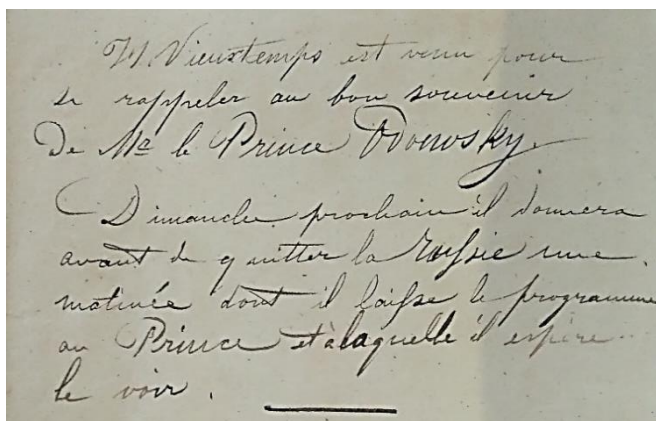 H. Vieuxtemps est venu pour
se rappeler au bon souvenir
de Mr le Prince Odowsky.
Dimanche prochain il donnera
avant de quitter la Russie une
matinée dont il laisse le programme
au Prince et à laquelle il espère
le voir.